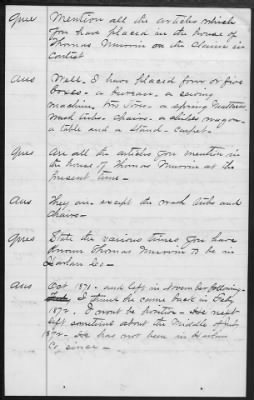 Ques Mention all the articles which
you have placed in the house of
Thomas on the Claim in
Contest
Ans Well. I have placed four or five
boxes - a bureau - a sewing
machine, two - a spring mattress,
wash tubs - chairs - a childs wagon -
a table and a stand - carpet -
Ques Are all the articles you mention in
the house of Thomas at the
present time -
Ans They are except the wash tubs and
chairs -
Ques State the various times you have
known Thomas to be in
Harlan Co -
Ans Oct. 1871 - and left in November following -
I think he came back in Feby
1872. I wont be positive - He next
left sometime about the Middle of
1872 - He has not been in Harlan
Co. since -